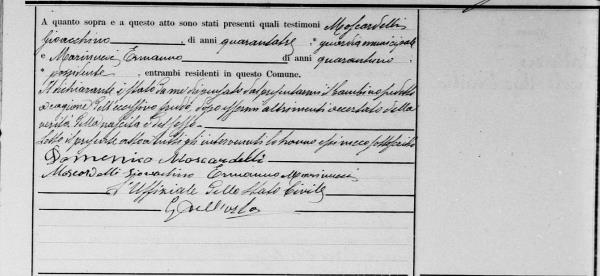 A quanto sopra e a questo atto sono stati presenti quali testimoni Moscardelli
Gioacchino, di anni quarantatre, guardia municipale
e Marinucci Ermanno, di anni quarantuno,
possidente, entrambi residenti in questo Comune.
Il dichiarante è stato da me dispensato dal presentarmi il bambino predetto
a cagione dell'eccessivo freddo, dopo essermi altrimenti accertato della
verità della nascita e del sesso.
Letto il presente atto a tutti gli intervenuti lo hanno essi meco sottoscritto
Domenico Moscardelli
Moscardelli Gioacchino Ermanno Marinucci
L'Uffiziale dello Stato Civile